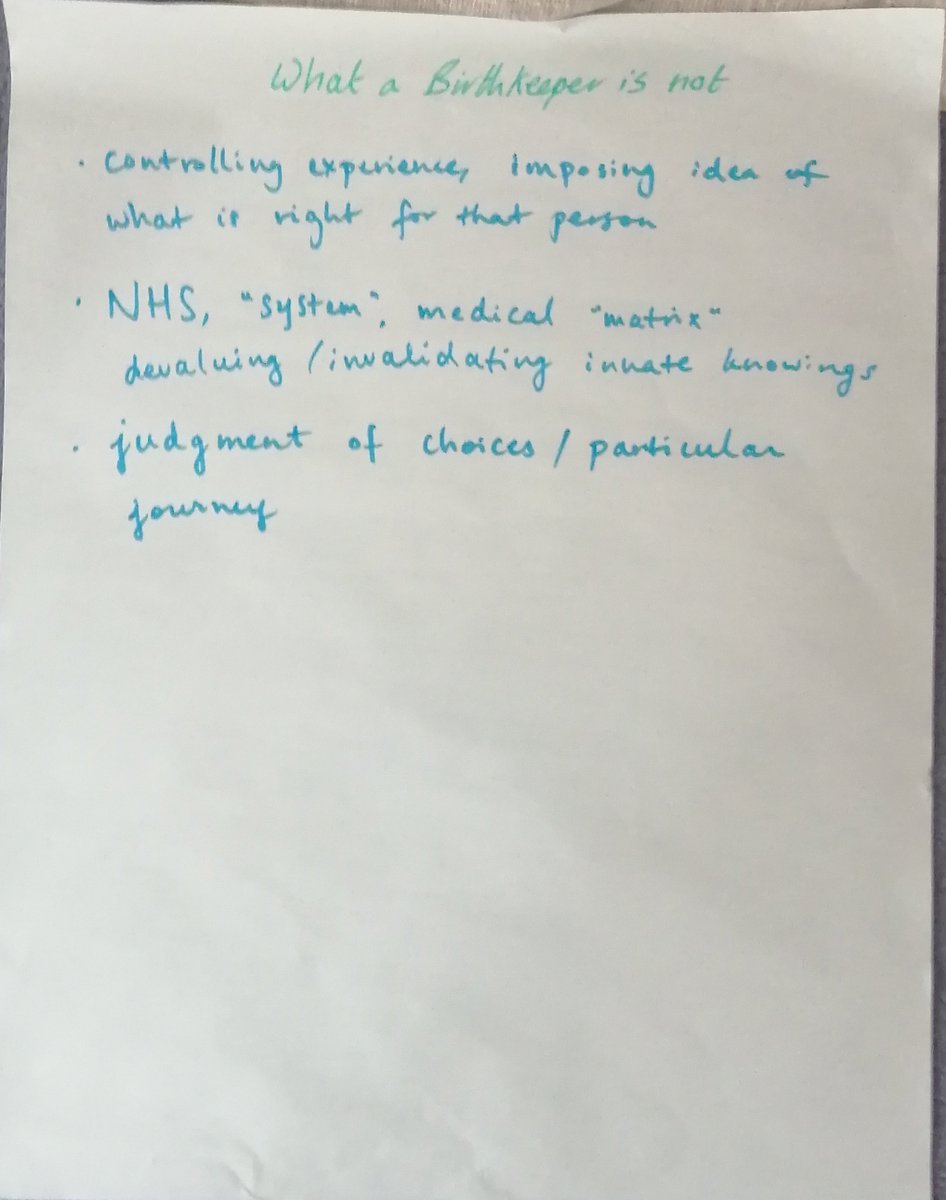 What a Birthkeeper is not
· controlling experience, imposing idea of
what is right for that person
· NHS, "system", medical "matrix"
devaluing / invalidating innate knowings
· judgment of choices / particular
journey